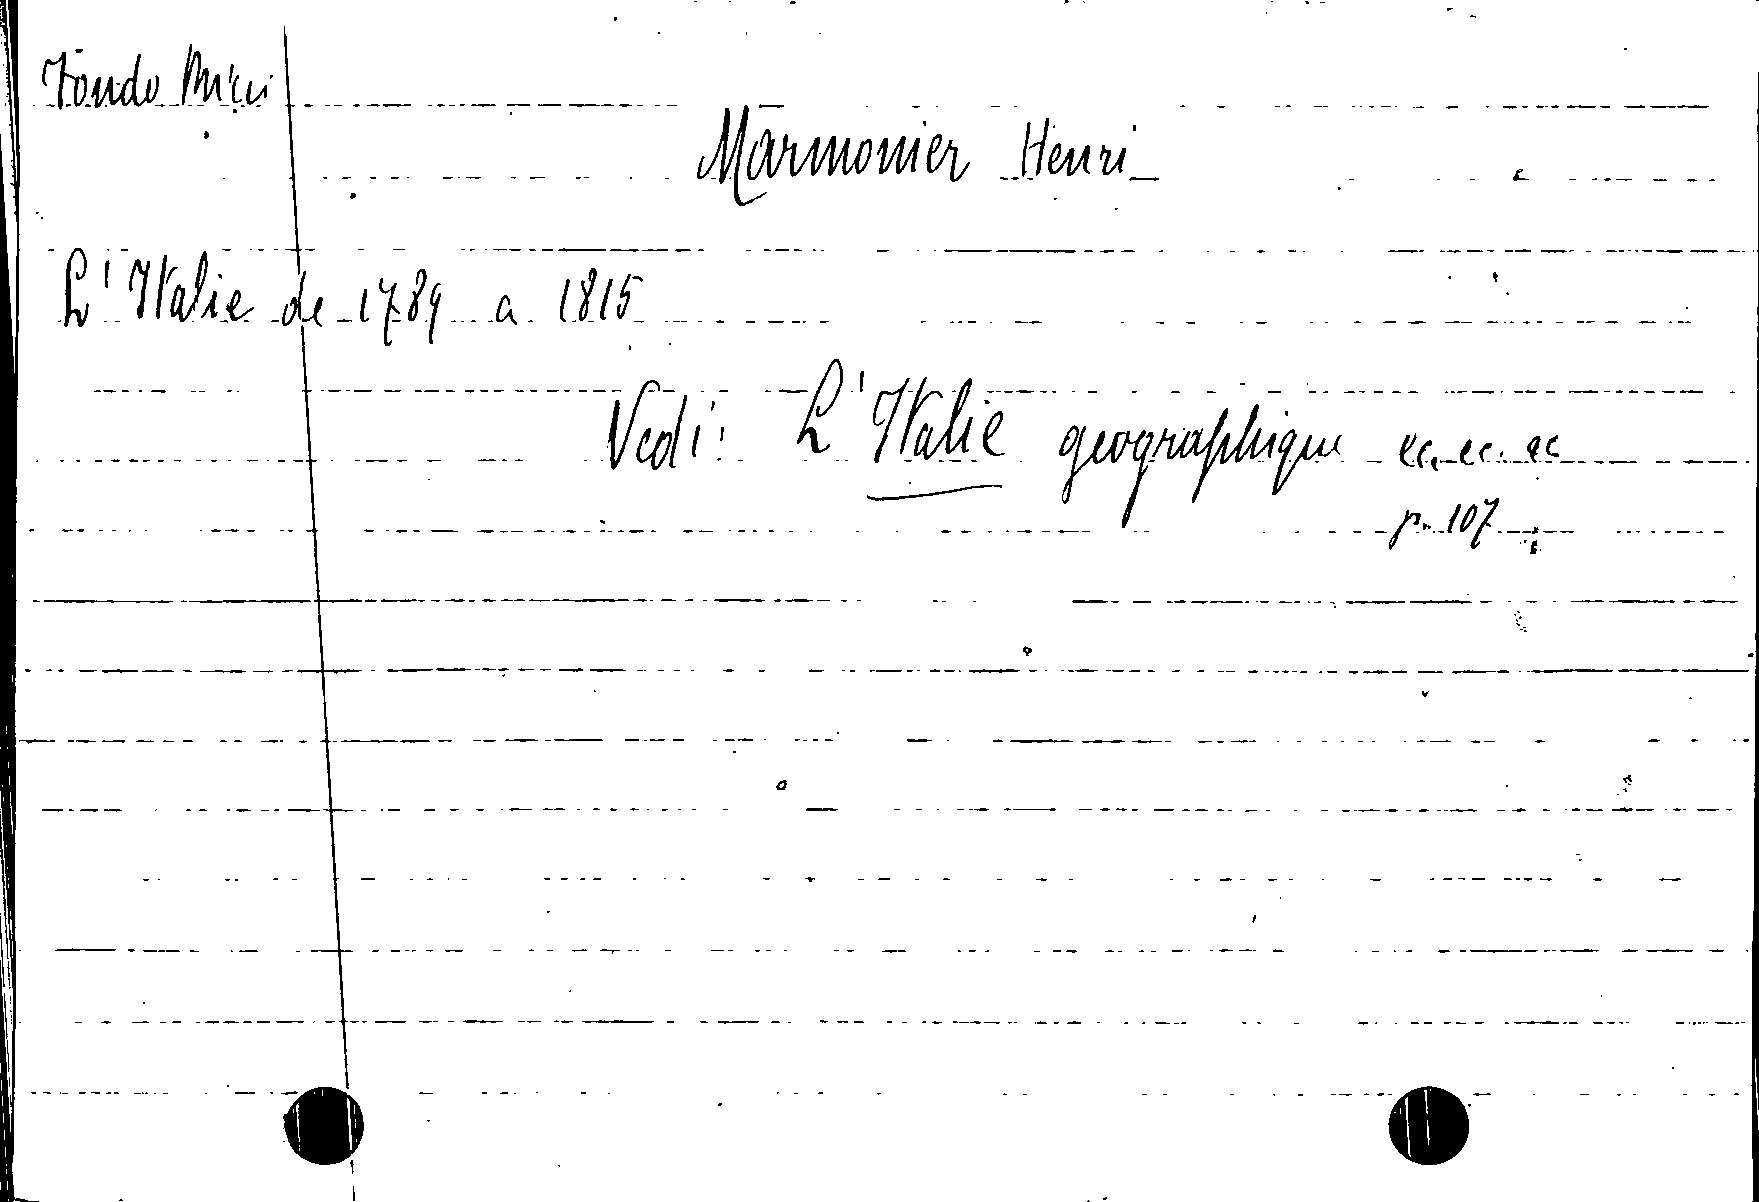 Fondo
Marmonier Henri
L'Italie de 1789 a 1815
Vedi: L'Italie geographique ec. ec. ec
p. 107